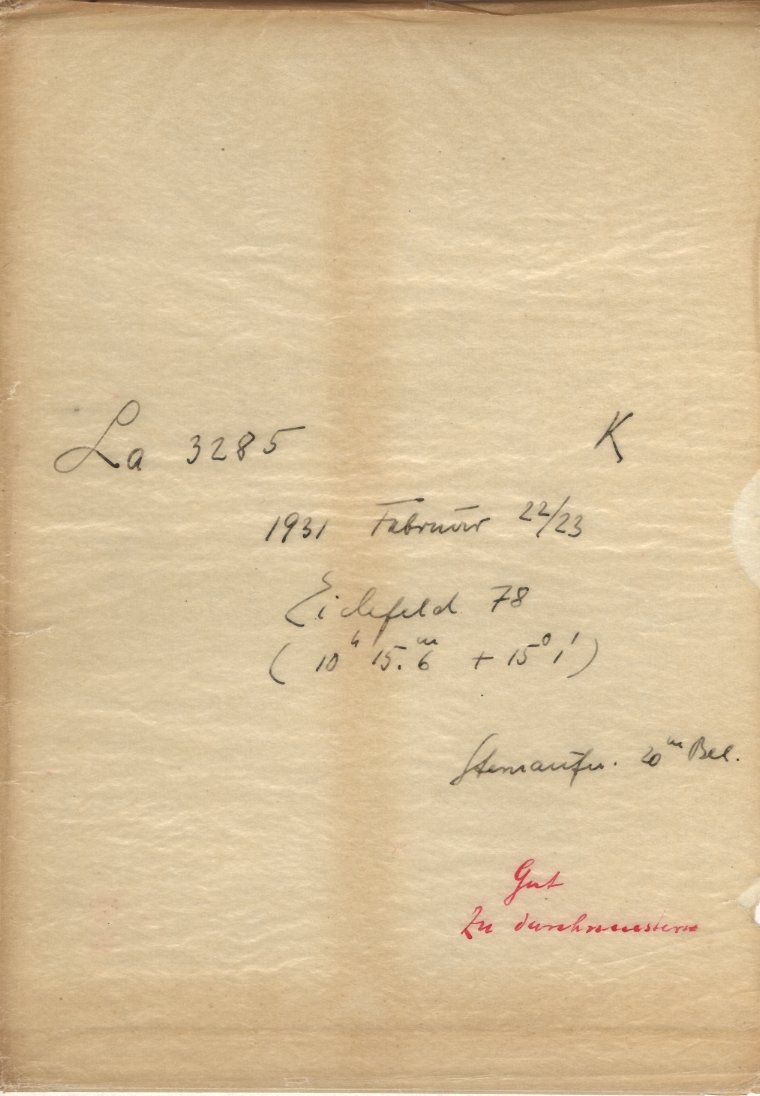 La 3285 K
1931 Februar 22/23
Eichfeld 78
( 10h 15.m6 + 15° 1' )
Sternaufn. 20m Bel.
Gut
Zu durchmustern